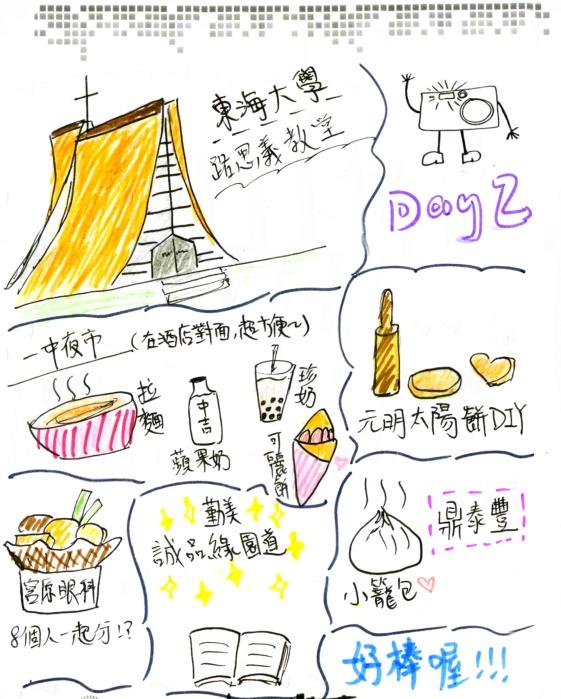 東海大學
路思義教堂
Day 2
一中夜市 (在酒店對面,超方便~)
拉麵
中吉
蘋果奶
珍奶
可麗餅
元明太陽餅DIY
宮原眼科
8個人一起分!?
勤美
誠品綠園道
鼎泰豐
小籠包
好棒喔!!!